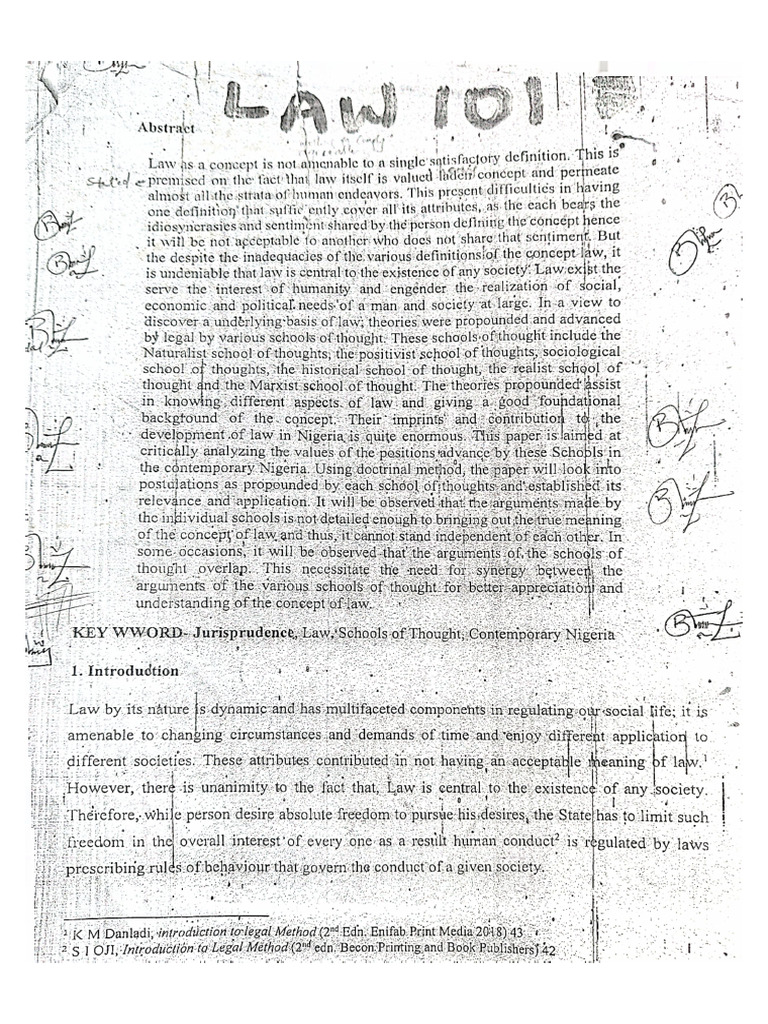 LAW 101
Abstract
Law as a concept is not amenable to a single satisfactory definition. This is
premised on the fact that law itself is valued laden concept and permeate
almost all the strata of human endeavors. This present difficulties in having
one definition that sufficiently cover all its attributes, as the each bears the
idiosyncrasies and sentiment shared by the person defining the concept hence
it will be not acceptable to another who does not share that sentiment. But
the despite the inadequacies of the various definitions of the concept law, it
is undeniable that law is central to the existence of any society. Law exist the
serve the interest of humanity and engender the realization of social,
economic and political needs of a man and society at large. In a view to
discover a underlying basis of law, theories were propounded and advanced
by legal by various schools of thought. These schools of thought include the
Naturalist school of thoughts, the positivist school of thoughts, sociological
school of thoughts, the historical school of thought, the realist school of
thought and the Marxist school of thought. The theories propounded assist
in knowing different aspects of law and giving a good foundational
background of the concept. Their imprints and contribution to the
development of law in Nigeria is quite enormous. This paper is aimed at
critically analyzing the values of the positions advance by these Schools in
the contemporary Nigeria. Using doctrinal method, the paper will look into
postulations as propounded by each school of thoughts and established its
relevance and application. It will be observed that the arguments made by
the individual schools is not detailed enough to bringing out the true meaning
of the concept of law and thus, it cannot stand independent of each other. In
some occasions, it will be observed that the arguments of the schools of
thought overlap. This necessitate the need for synergy between the
arguments of the various schools of thought for better appreciation and
understanding of the concept of law.
KEY WWORD- Jurisprudence, Law, Schools of Thought, Contemporary Nigeria
1. Introduction
Law by its nature is dynamic and has multifaceted components in regulating our social life; it is
amenable to changing circumstances and demands of time and enjoy different application to
different societies. These attributes contributed in not having an acceptable meaning of law.¹
However, there is unanimity to the fact that, Law is central to the existence of any society.
Therefore, while person desire absolute freedom to pursue his desires, the State has to limit such
freedom in the overall interest of every one as a result human conduct² is regulated by laws
prescribing rules of behaviour that govern the conduct of a given society.
¹ K M Danladi, introduction to legal Method (2nd Edn. Enifab Print Media 2018) 43
² S I OJI, Introduction to Legal Method (2nd edn. Becon Printing and Book Publishers) 42